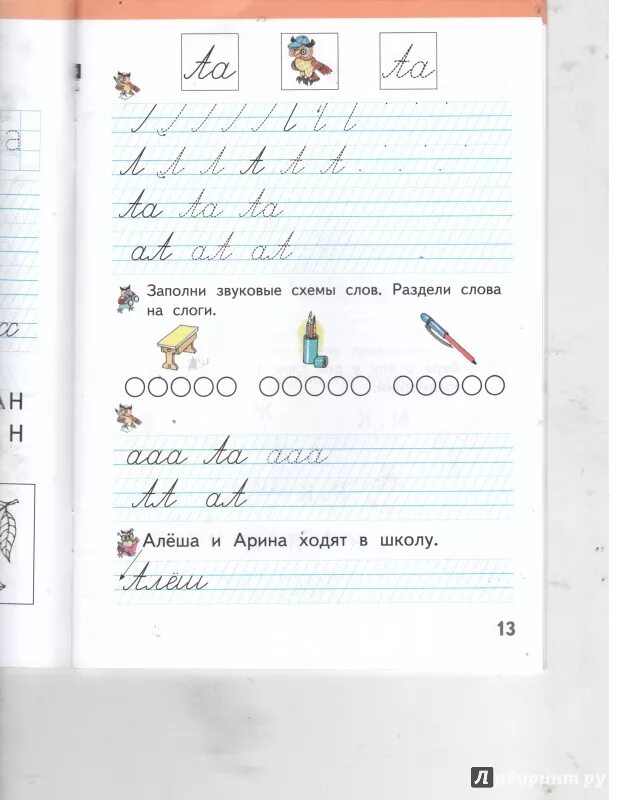 Аа Аа
а
Аа Аа Аа
аА аА аА
Заполни звуковые схемы слов. Раздели слова
на слоги.
АН
Н
ааа Аа ааа
АА аА
Алёша и Арина ходят в школу.
Алёш
13
Лабиринт.ру